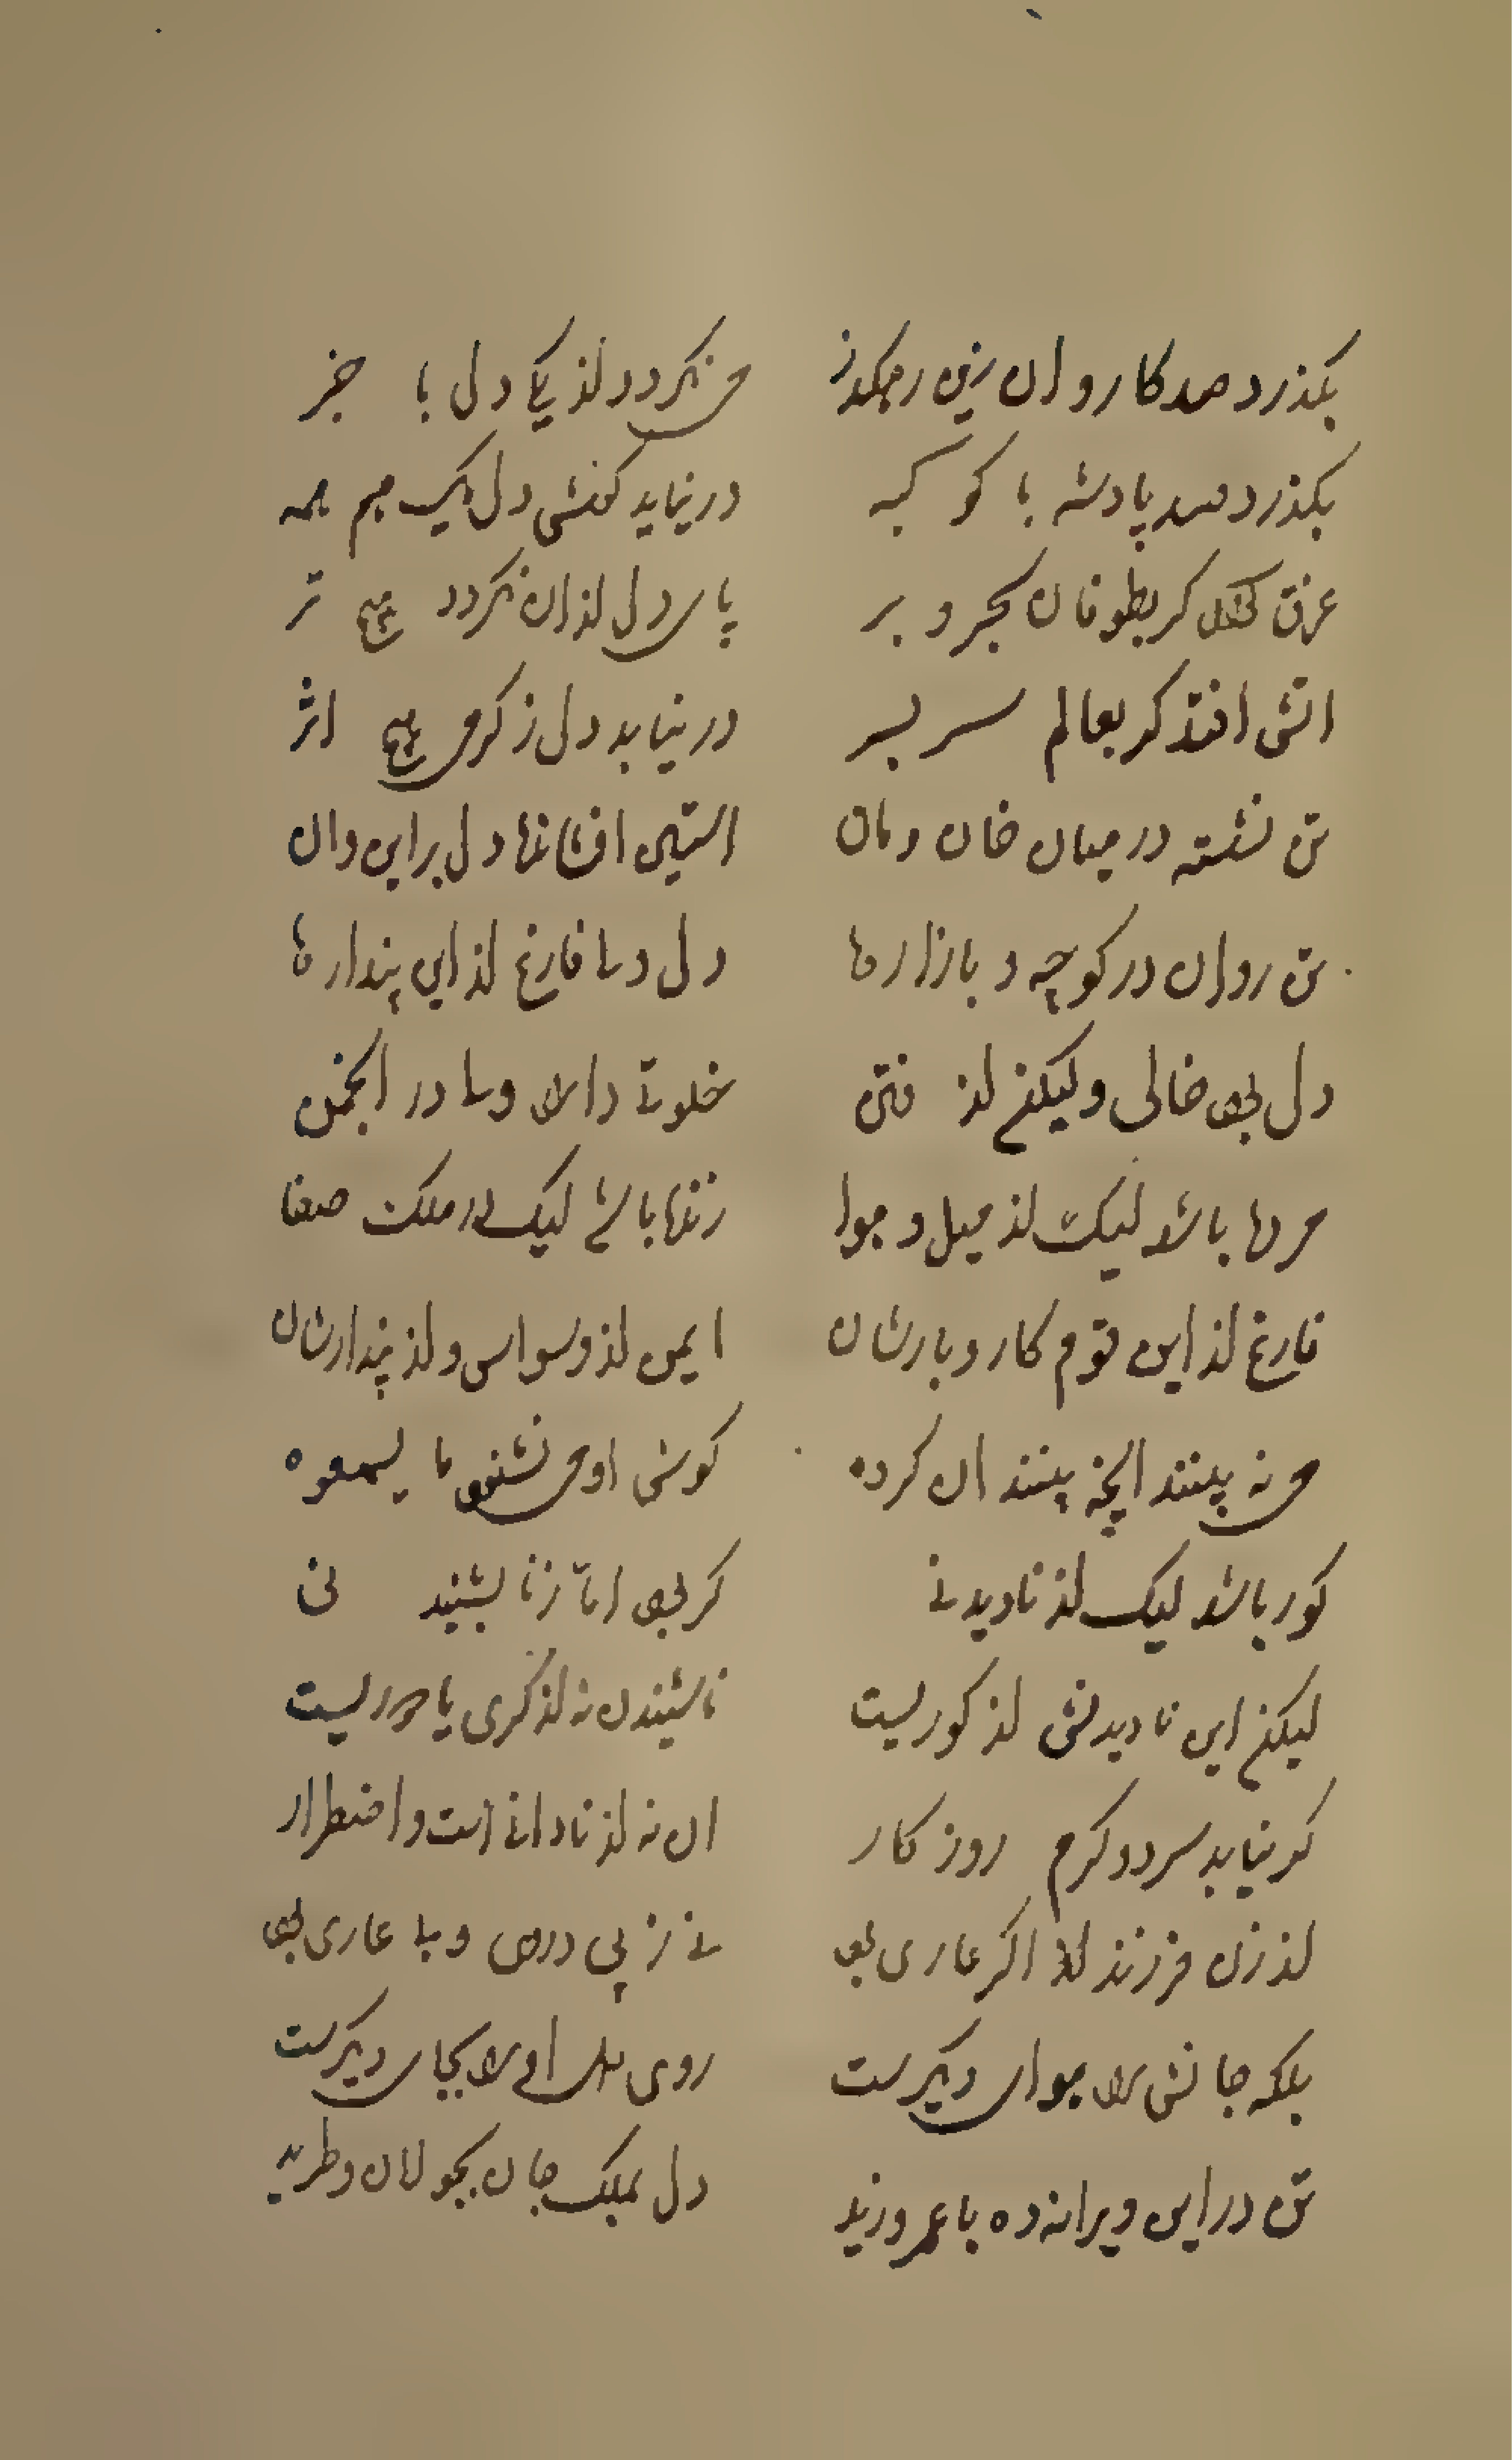 بکذرد صد کاروان زین رهکذر می نکردد از یکی دل با خبر
بکذرد صد پادشه با کوکبه در نیاید کفش دل یک هم همه
غرق کر بطوفان بحر و بر پای دل از ان نکردد هیچ تر
اتش افتد کر بعالم سر بسر در نیابد دل ز کرمی هیچ اثر
تن نشسته در میان خان و مان استین افشانها دل بر این و ان
تن روان در کوچه و بازارها دل دما فارغ از این پندارها
دل بود خالی ولیکن از فتن خلوتی دارد ولی در انجمن
مردها باشد لیک از میل و هوا زندها باشی لیک در ملک صفا
فارغ از این قوم کار و بارشان ایمن از وسواس و از پندارشان
می نه بینند انچه بینند ان کرده کوش او می نشنود ما یسمعوه
کور باشد لیک از نادیدنی کر بود اما ز نا بشنیدنی
لیکن این نادیدنش از کوریست ناشنیدن نه از کری یا دوریست
کر نیابد سرد و کرم روزکار ان نه از نادانی است و اضطرار
از زن فرزند اکر عاری بود نی ز بی دردی و بی عاری بود
بلکه جانش را هوای دیکرست روی دل او را بجای دیکرست
تن در این ویرانه ده با عمرو و زید دل بملک جان بجولان و طرید